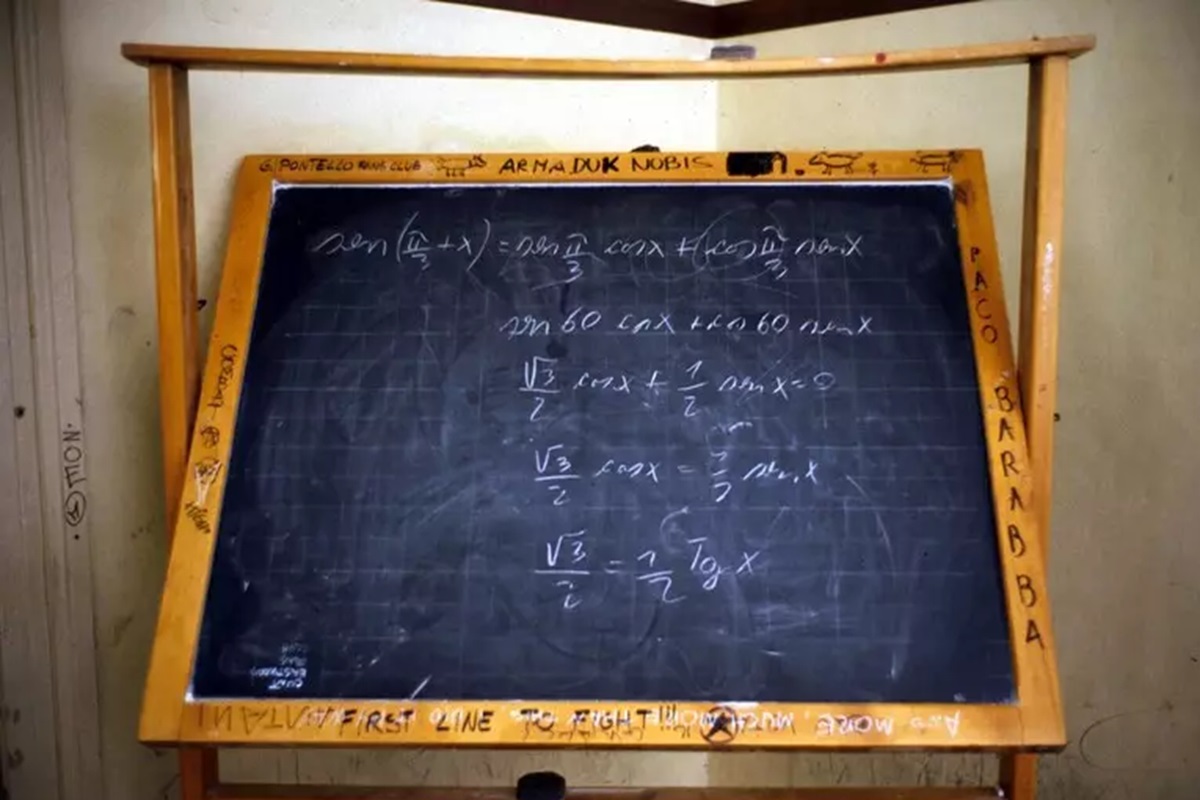 G. PONTELLO FANS CLUB ARMADUK NOBIS
sen(π/3 + x) = sen π/3 cosx + (cos π/3 senx
sen 60 cosx + cos 60 senx
√3/2 cosx + 1/2 sen x = 0
√3/2 cosx = 1/2 sen x
√3/2 = 1/2 Tg x
PACO BARABBA
FIRST LINE TO FIGHT!!!
AND MORE, MUCH MORE
TION.